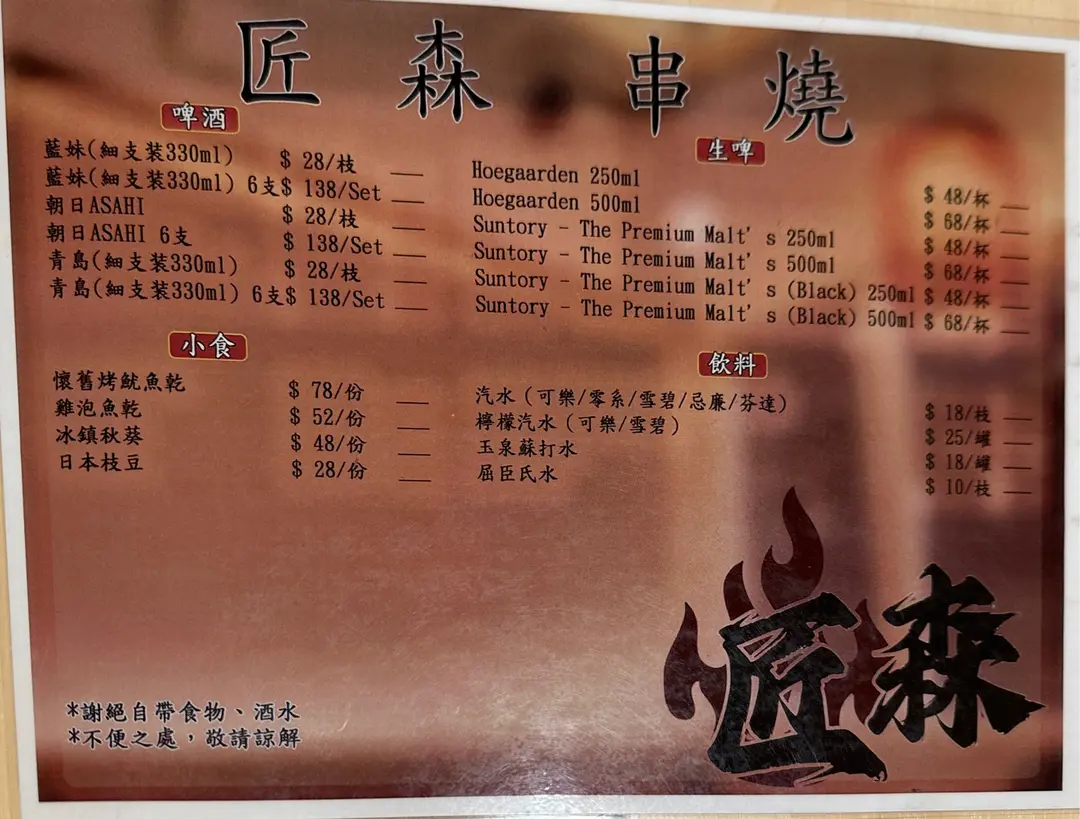 匠森串燒
啤酒
藍妹(細支装330ml) $ 28/枝
藍妹(細支装330ml) 6支$ 138/Set
朝日ASAHI $ 28/枝
朝日ASAHI 6支 $ 138/Set
青島(細支装330ml) $ 28/枝
青島(細支装330ml) 6支$ 138/Set
生啤
Hoegaarden 250ml $ 48/杯
Hoegaarden 500ml $ 68/杯
Suntory - The Premium Malt's 250ml $ 48/杯
Suntory - The Premium Malt's 500ml $ 68/杯
Suntory - The Premium Malt's (Black) 250ml $ 48/杯
Suntory - The Premium Malt's (Black) 500ml $ 68/杯
小食
懷舊烤魷魚乾 $ 78/份
雞泡魚乾 $ 52/份
冰鎮秋葵 $ 48/份
日本枝豆 $ 28/份
飲料
汽水 (可樂/零系/雪碧/忌廉/芬達) $ 18/枝
檸檬汽水 (可樂/雪碧) $ 25/罐
玉泉蘇打水 $ 18/罐
屈臣氏水 $ 10/枝
*謝絕自帶食物、酒水
*不便之處，敬請諒解
匠森